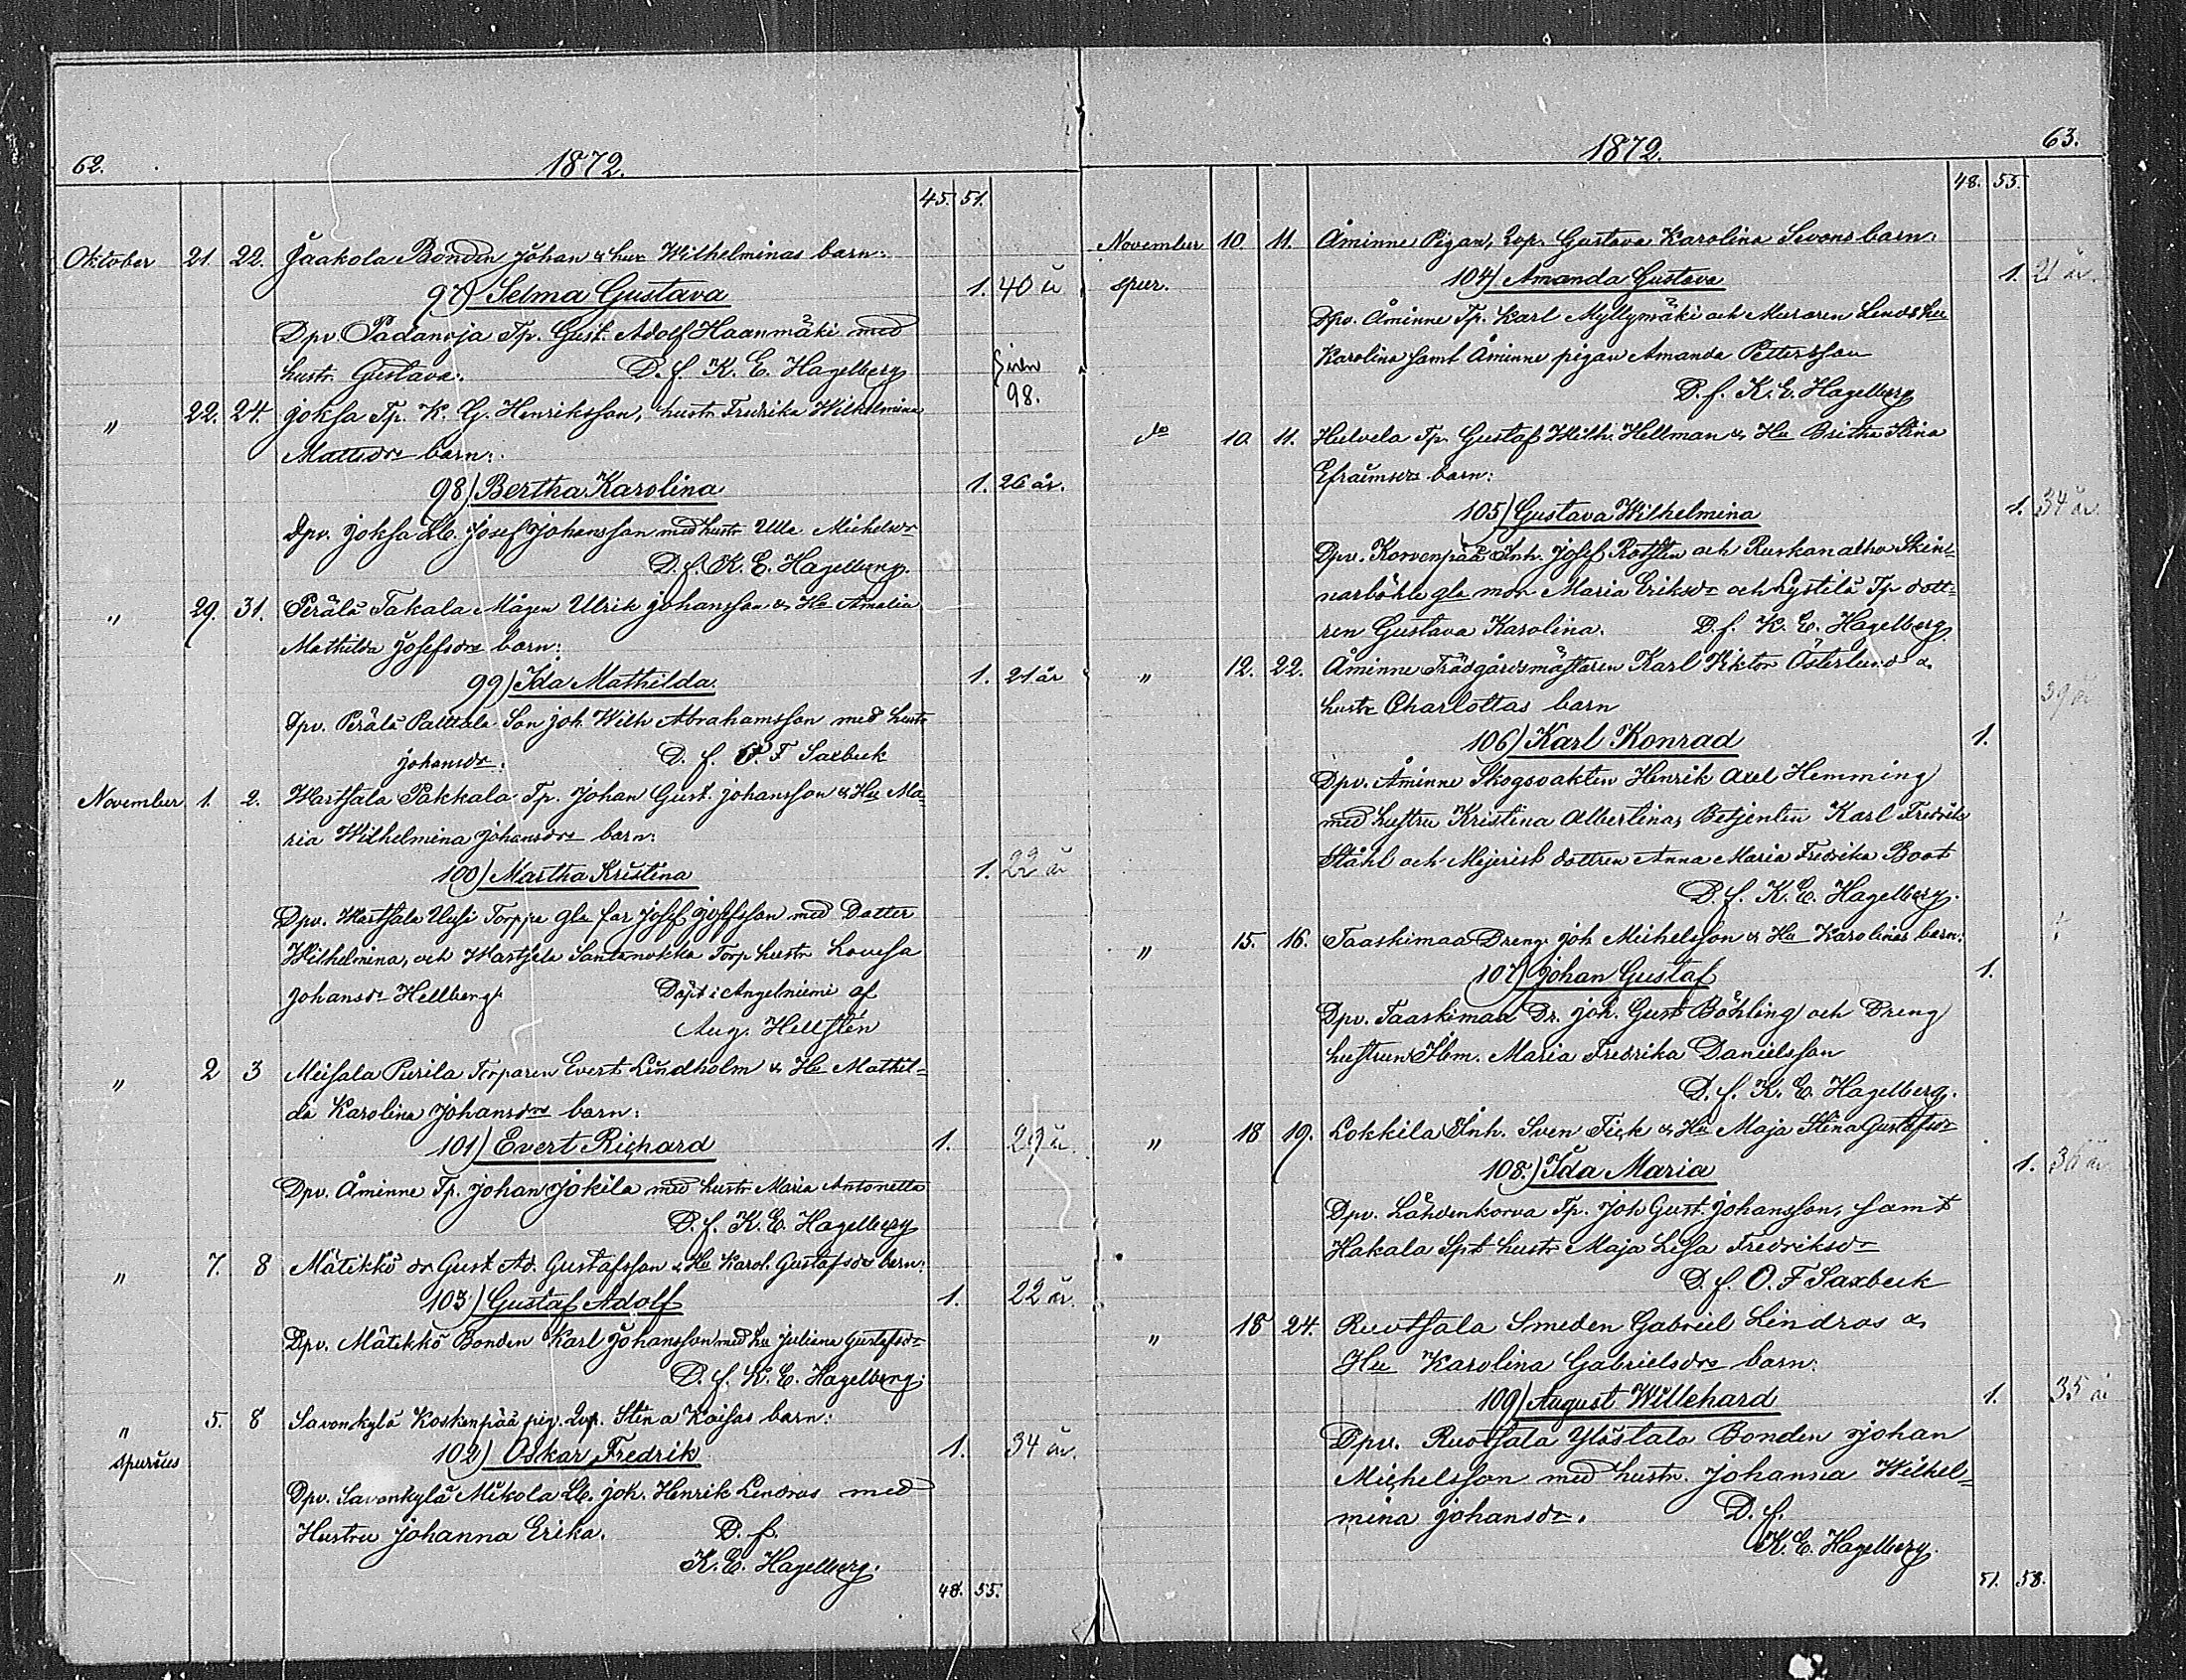 62. 1872.
45. 51.
Oktober 21. 22. Jaakola Bonden Johan & hus Wilhelminas barn:
97) Selma Gustava 1. 40 år
Dpv. Padanoja Tp. Gust. Adolf Haanmäki med
hustr. Gustava. D. f. K. E. Hagelberg
98.
" 22. 24. Joksa Tp. K. G. Henriksson, hustr Fredrika Wilhelmina
Mattsdr barn:
98) Bertha Karolina 1. 26 år.
Dpv. Joksa Josef Johansson med hustr Ulla Michelsdr
D. f. K. E. Hagelberg.
" 29. 31. Perälä Takala Mågen Ulrik Johansson & Hu Amalia
Mathilda Josefsdr barn:
99) Ida Mathilda 1. 21 år
Dpv. Perälä Son Joh. Wilh Abrahamsson med hustr
Johansdr. D. f. O. F Saxbeck
November 1. 2. Wartsala Pakkala Tp. Johan Gust. Johansson & Hu Ma-
ria Wilhelmina Johansdr barn:
100) Martha Kristina 1. 22 år
Dpv. Wartsala Uusi Torppa gla far Josef Josefsson med Dotter
Wilhelmina, och Wartsala Santanokka Torp hustr Lovisa
Johansdr Hellberg. Döpt i Angelniemi af
Aug. Hellstén
" 2 3 Meisala Purila Torparen Evert Lindholm & Hu Mathil-
da Karolina Johansdr barn:
101) Evert Richard 1. 29 år.
Dpv. Åminne Tp. Johan Jokila med hustr Maria Antonetta
D. f. K. E. Hagelberg
" 7. 8 Mätikkö dr Gust Ad. Gustafsson & Hu Karol. Gustafsdr barn:
103) Gustaf Adolf 1. 22 år.
Dpv. Mätikkö Bonden Karl Johansson med hu Juliana Gustafsdr
D. f. K. E. Hagelberg.
" 5. 8 Savonkylä Koskenpää pig. Stina Kaisas barn:
spurius 102) Oskar Fredrik 1. 34 år.
Dpv. Savonkylä Mikola Joh. Henrik Lindros med
Hustru Johanna Erika. D. f.
K. E. Hagelberg.
48. 55.
1872. 63.
48. 55.
November 10. 11. Åminne Pigan, Gustava Karolina Sevons barn.
spur. 104) Amanda Gustava 1. 21 år.
Dpv. Åminne Tp. Karl Myllymäki och Muraren Linds hu
Karolina samt Åminne pigan Amanda Pettersson
D. f. K. E. Hagelberg
do 10. 11. Hulvela Tp. Gustaf Wilh. Hellman & Hu Britha Stina
Efraimsdr barn:
105) Gustava Wilhelmina 1. 34 år.
Dpv. Korvenpää Inh. Josef Rotsten och Ruskanalho Skin-
narböhle gla mor Maria Eriksdr och Lystilä Tp dott-
ren Gustava Karolina. D. f. K. E. Hagelberg.
" 12. 22. Åminne Trädgårdsmästaren Karl Viktor Österlund &
hustr Charlottas barn 39 år
106) Karl Konrad 1.
Dpv. Åminne Skogsvakten Henrik Axel Hemming
med hustru Kristina Albertina, Betjenten Karl Fredrik
Ståhl och Mejerist dottren Anna Maria Fredrika Boot
D. f. K. E. Hagelberg.
" 15. 16. Taaskimaa Dreng Joh Michelsson & Hu Karolinas barn:
107) Johan Gustaf 1.
Dpv. Taaskimaa Dr. Joh. Gust Böhling och Dreng
hustrun Maria Fredrika Danielsson
D. f. K. E. Hagelberg.
" 18 19. Lokkila Inh. Sven Fick & Hu Maja Stina Gustafsdr
108.) Ida Maria 1. 36 år
Dpv. Lähdenkorva Tp. Joh Gust. Johansson, samt
Hakala Spt hustr Maja Lisa Fredriksdr
D. f. O. F Saxbeck
" 18 24. Ruotsala Smeden Gabriel Lindros &
Hu Karolina Gabrielsdrs barn:
109) August Willehard 1. 35 år
Dpv. Ruotsala Ylöstalo Bonden Johan
Michelsson med hustr. Johanna Wilhel-
mina Johansdr. D. f.
K. E. Hagelberg.
51. 58.